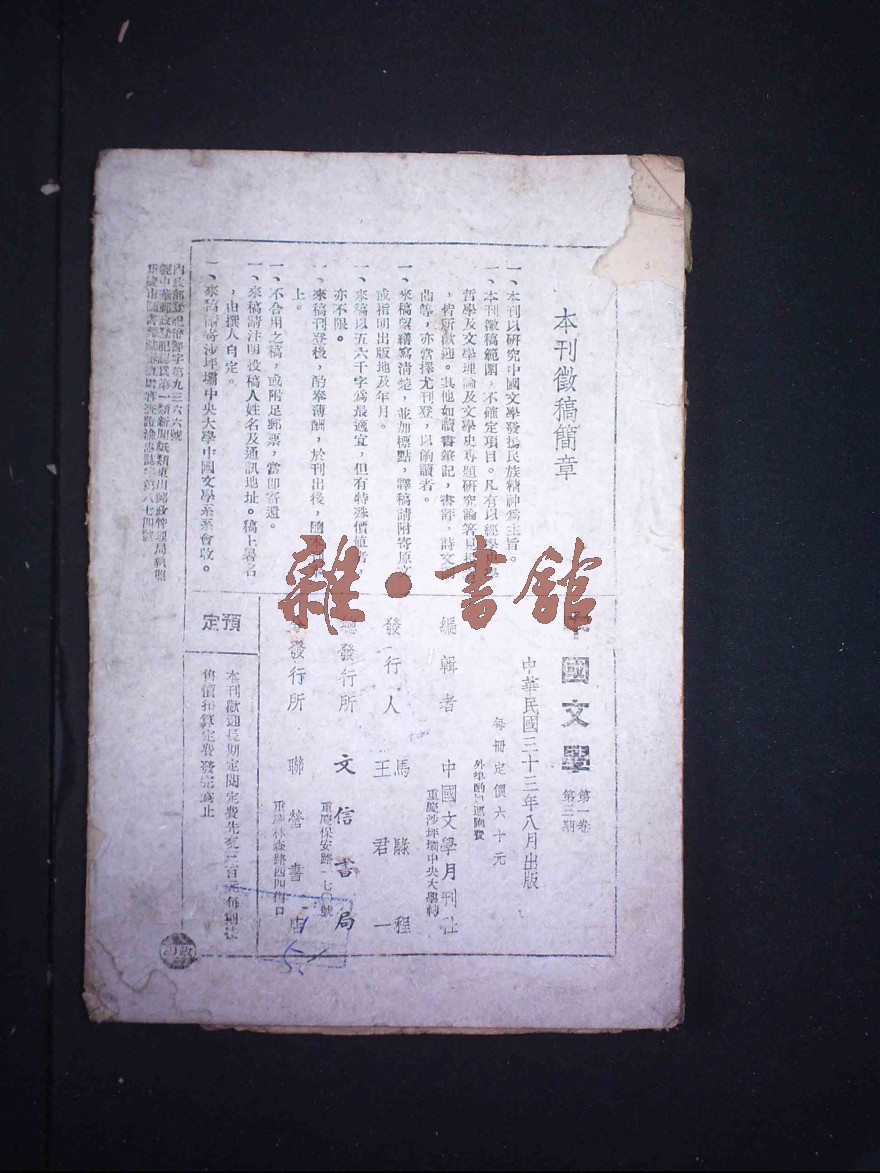 本刊徵稿簡章
一、本刊以研究中國文學發揚民族精神爲主旨。
一、本刊徵稿範圍，不確定項目。凡有以經學史學
哲學及文學理論及文學史專題研究論著見
，皆所歡迎。其他如讀書筆記，書評，詩文
曲等，亦當擇尤刊登，以餉讀者。
一、來稿望繕寫清楚，並加標點，譯稿請附寄原文
或指明出版地及年月。
一、來稿以五六千字爲最適宜，但有特殊價值者，
亦不限。
一、來稿刊登後，酌奉薄酬，於刊出後，隨本
上。
一、不合用之稿，或附足郵票，當即寄還。
一、來稿請注明投稿人姓名及通訊地址。稿上署名
，由撰人自定。
一、來稿請寄沙坪壩中央大學中國文學系系會收。
中國文學
第一卷
第三期
中華民國三十三年八月出版
每冊定價六十元
外埠酌加運匯費
編輯者 中國文學月刊社
重慶沙坪壩中央大學轉
發行人 馬騄程
王君一
總發行所 文信書局
重慶保安路一七〇號
分發行所 聯營書店
重慶林森路四四街口
預定
本刊歡迎長期定閱定費先交三百元每期按
售價扣算定費發完爲止
內政部登記證警字第九三六六號
雜·書館